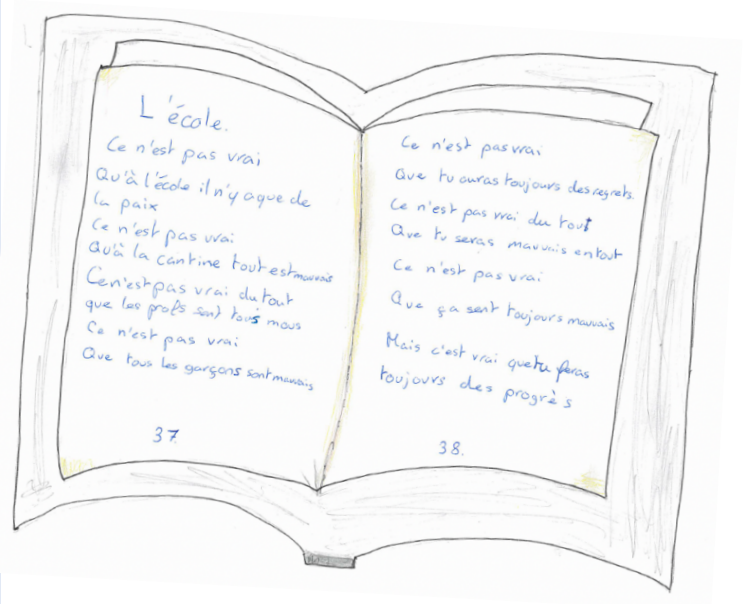 L'école.
Ce n'est pas vrai
Qu'à l'école il n'y a que de
la paix
Ce n'est pas vrai
Qu'à la cantine tout est mauvais
Ce n'est pas vrai du tout
que les profs sont tous mous
Ce n'est pas vrai
Que tous les garçons sont mauvais
37.
Ce n'est pas vrai
Que tu auras toujours des regrets.
Ce n'est pas vrai du tout
Que tu seras mauvais en tout
Ce n'est pas vrai
Que ça sent toujours mauvais
Mais c'est vrai que tu feras
toujours des progrès
38.